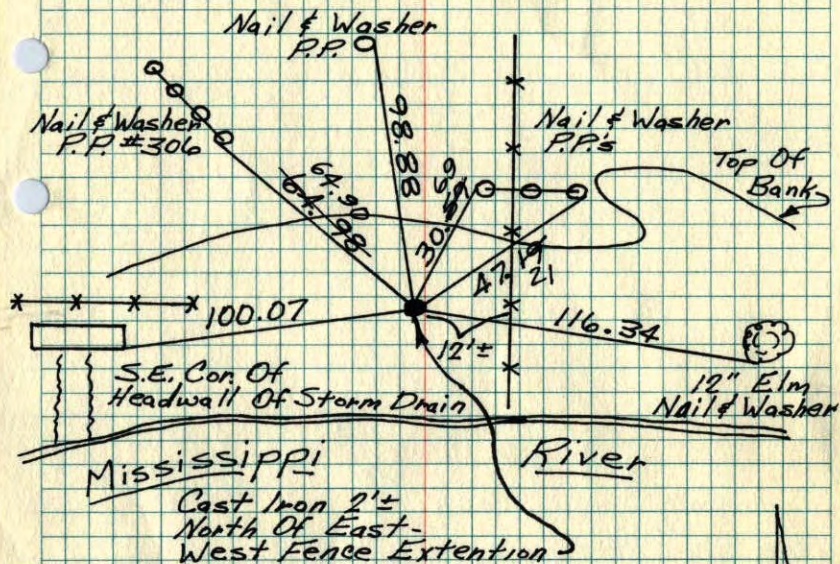 Nail & Washer
P.P.
Nail & Washer
P.P. #306
Nail & Washer
P.P.'s
Top Of
Bank
98.88
64.90
64.98
59
30.
47.19
21
100.07
116.34
12'±
S.E. Cor. Of
Headwall Of Storm Drain
12" Elm
Nail & Washer
Mississippi River
Cast Iron 2'±
North Of East-
West Fence Extention